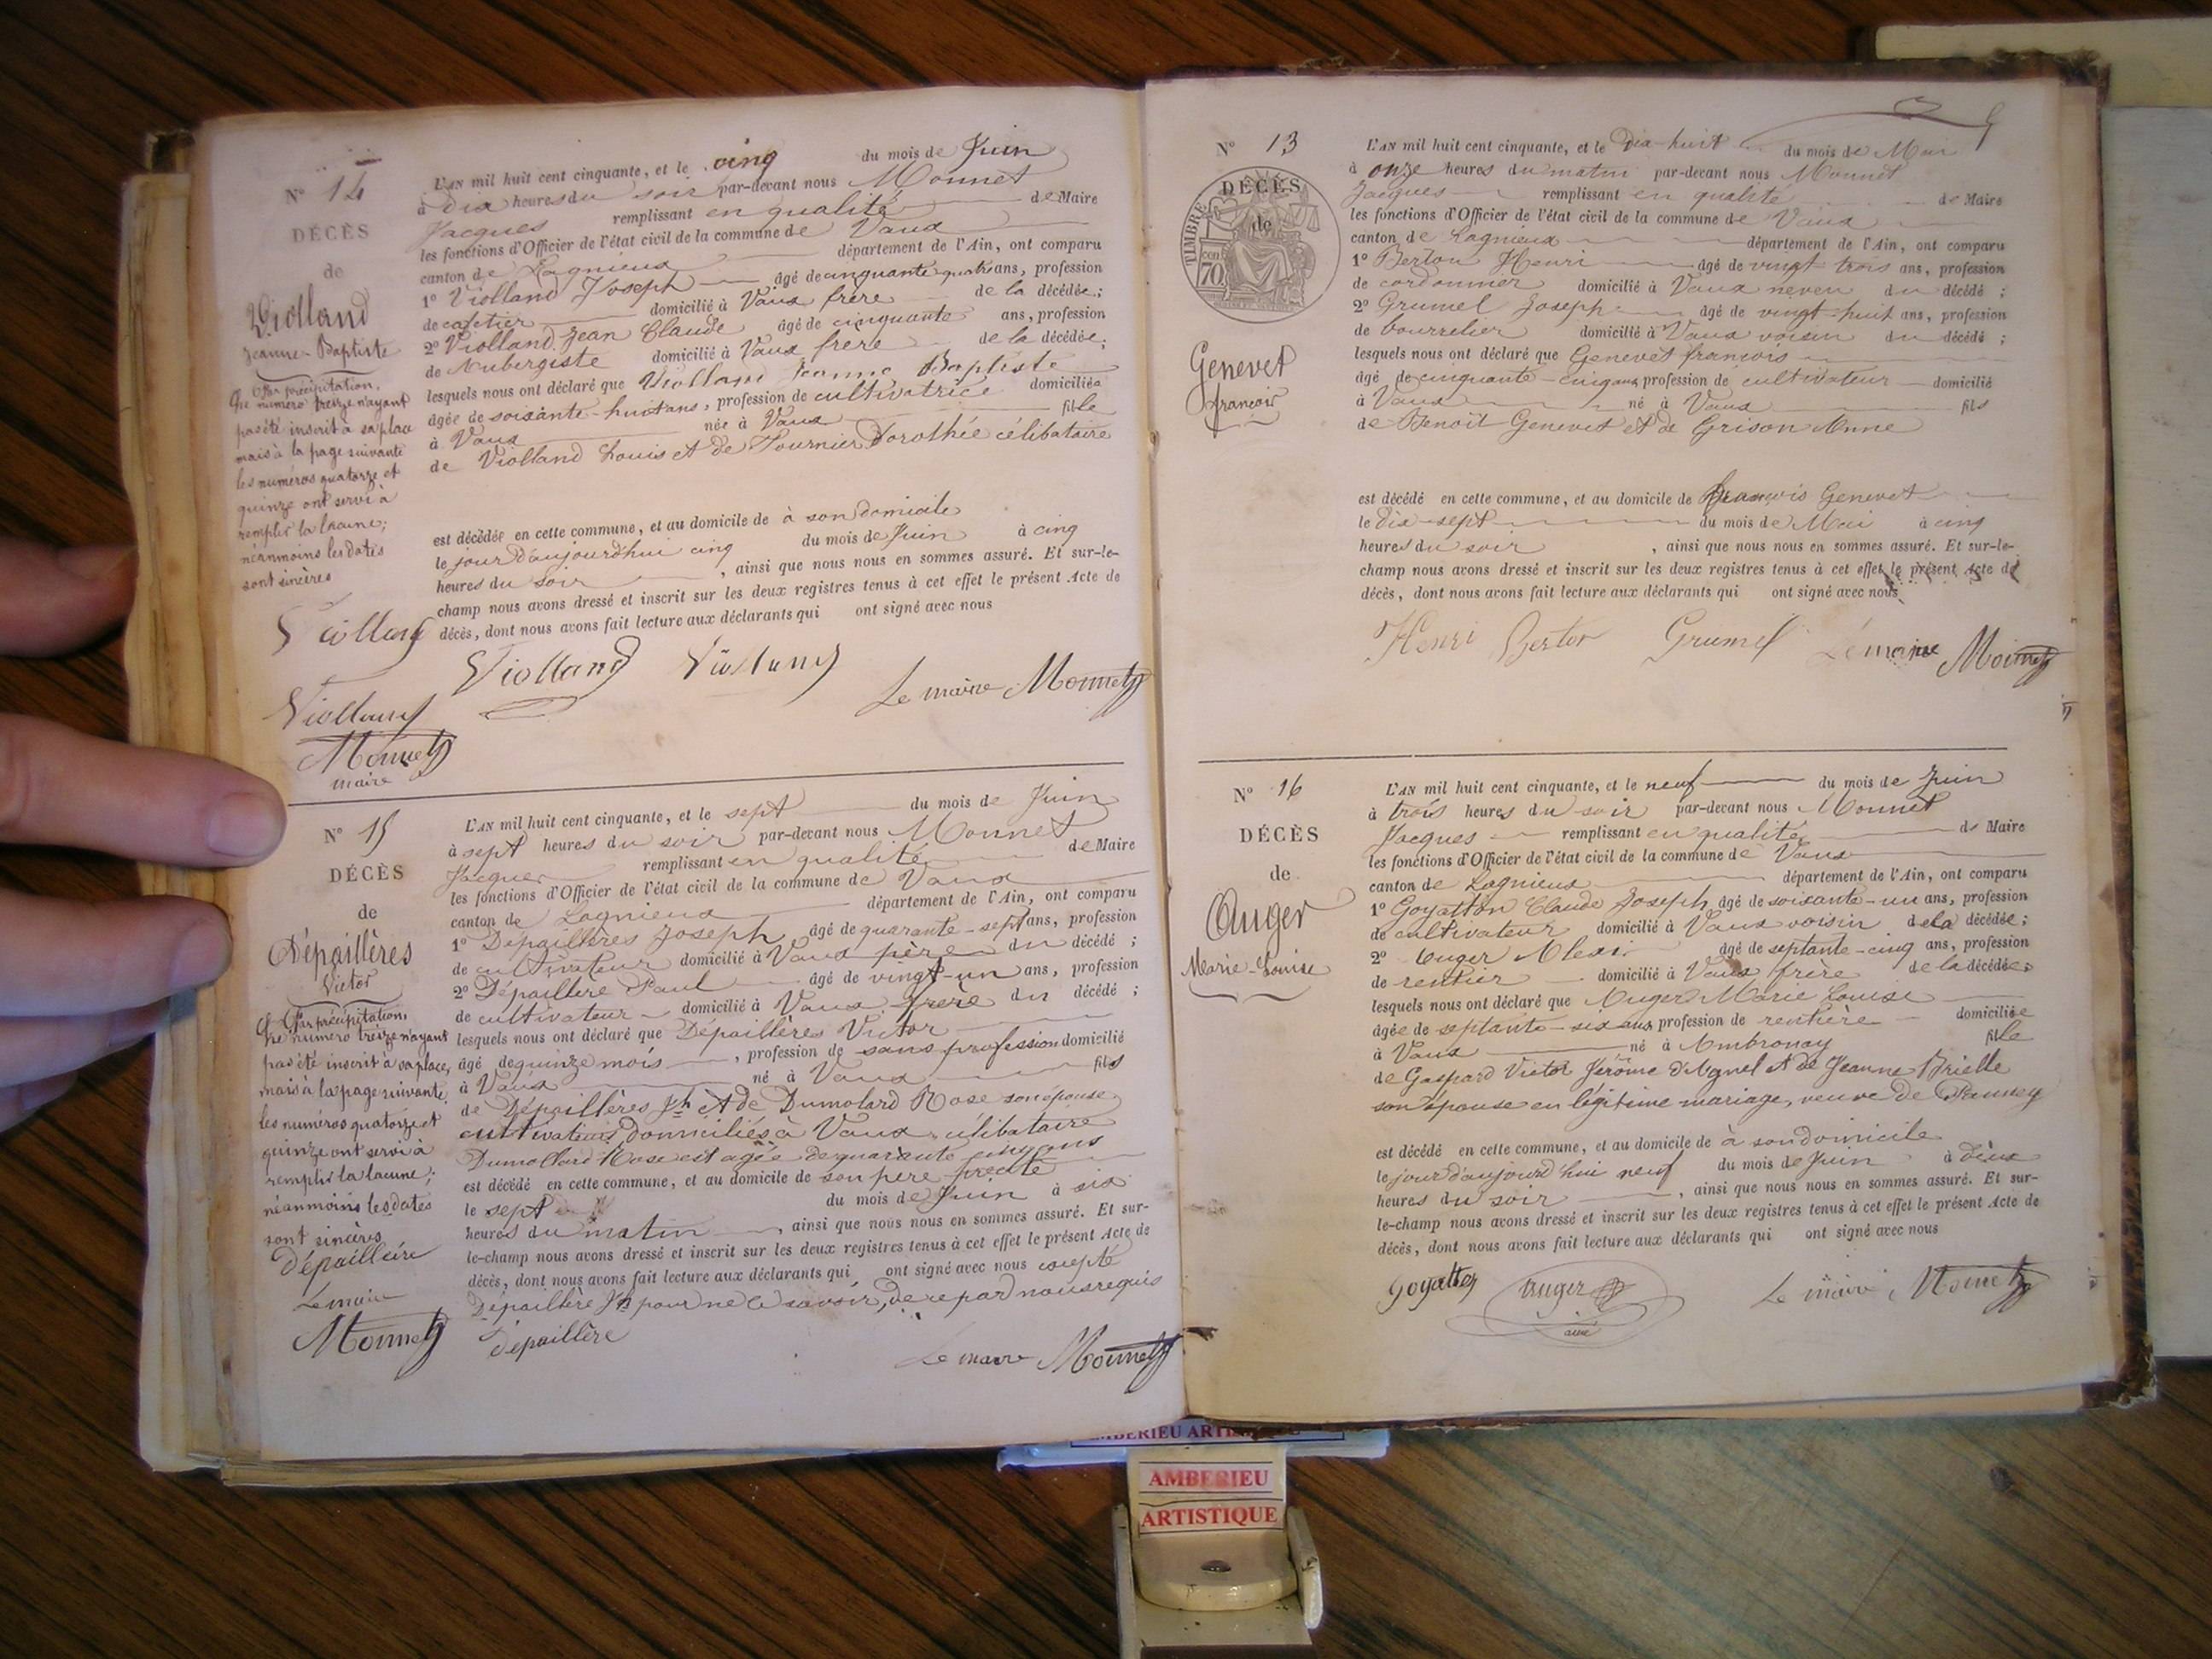 N° 14
DÉCÈS
de
Violland
Jeanne-Baptiste
Par précipitation,
le numéro treize n'ayant
pas été inscrit à sa place
mais à la page suivante
les numéros quatorze et
quinze ont servi à
remplir la lacune;
néanmoins les dates
sont sincères
Violland
Violland
Monnet
maire
L'AN mil huit cent cinquante, et le cinq du mois de Juin
à dix heures du soir par-devant nous Monnet
Jacques remplissant en qualité de Maire
les fonctions d'Officier de l'état civil de la commune de Vaux
canton de Lagnieux département de l'Ain, ont comparu
1° Violland Joseph âgé de cinquante quatre ans, profession
de domicilié à Vaux frère de la décédée;
2° Violland Jean Claude âgé de cinquante ans, profession
de Aubergiste domicilié à Vaux frère de la décédée;
lesquels nous ont déclaré que Violland Jeanne Baptiste
âgée de soixante-huit ans, profession de cultivatrice domiciliée
à Vaux née à Vaux fille
de Violland Louis et de Fournier Dorothée célibataire
est décédée en cette commune, et au domicile de à son domicile
le jour d'aujourd'hui cinq du mois de Juin à cinq
heures du soir , ainsi que nous nous en sommes assuré. Et sur-le-
champ nous avons dressé et inscrit sur les deux registres tenus à cet effet le présent Acte de
décès, dont nous avons fait lecture aux déclarants qui ont signé avec nous
Violland Violland Le maire Monnet
N° 15
DÉCÈS
de
Dépaillères
Victor
Par précipitation,
le numéro treize n'ayant
pas été inscrit à sa place,
mais à la page suivante,
les numéros quatorze et
quinze ont servi à
remplir la lacune;
néanmoins les dates
sont sincères
Dépaillère
Le maire
Monnet
L'AN mil huit cent cinquante, et le sept du mois de Juin
à sept heures du soir par-devant nous Monnet
Jacques remplissant en qualité de Maire
les fonctions d'Officier de l'état civil de la commune de Vaux
canton de Lagnieux département de l'Ain, ont comparu
1° Dépaillères Joseph âgé de quarante-sept ans, profession
de cultivateur domicilié à Vaux père du décédé ;
2° Dépaillère Paul âgé de vingt-un ans, profession
de cultivateur domicilié à Vaux frère du décédé ;
lesquels nous ont déclaré que Dépaillères Victor
âgé de quinze mois , profession de sans profession domicilié
à Vaux né à Vaux fils
de Dépaillères Jh et de Dumolard Rose son épouse
cultivateurs domiciliés à Vaux, célibataire
Dumollard Rose est agée de quarante cinq ans
est décédé en cette commune, et au domicile de son père précité
le sept du mois de Juin à six
heures du matin , ainsi que nous nous en sommes assuré. Et sur-
le-champ nous avons dressé et inscrit sur les deux registres tenus à cet effet le présent Acte de
décès, dont nous avons fait lecture aux déclarants qui ont signé avec nous excepté
Dépaillère Jh pour ne le savoir, de ce par nous requis
Dépaillère Le maire Monnet
N° 13
DÉCÈS
de
TIMBRE
70
Genevet
françois
L'AN mil huit cent cinquante, et le Dix-huit du mois de Mai
à onze heures du matin par-devant nous Monnet
Jacques remplissant en qualité de Maire
les fonctions d'Officier de l'état civil de la commune de Vaux
canton de Lagnieux département de l'Ain, ont comparu
1° Berton Henri âgé de vingt trois ans, profession
de cordonnier domicilié à Vaux neveu du décédé ;
2° Grumel Joseph âgé de vingt-huit ans, profession
de bourrelier domicilié à Vaux voisin du décédé ;
lesquels nous ont déclaré que Genevet françois
âgé de cinquante-cinq ans profession de cultivateur domicilié
à Vaux né à Vaux fils
de Benoît Genevet et de Grison Anne
est décédé en cette commune, et au domicile de françois Genevet
le dix-sept du mois de Mai à cinq
heures du soir , ainsi que nous nous en sommes assuré. Et sur-le-
champ nous avons dressé et inscrit sur les deux registres tenus à cet effet le présent Acte de
décès, dont nous avons fait lecture aux déclarants qui ont signé avec nous
Henri Berton Grumel Le maire Monnet
N° 16
DÉCÈS
de
Auger
Marie-Louise
L'AN mil huit cent cinquante, et le neuf du mois de Juin
à trois heures du soir par-devant nous Monnet
Jacques remplissant en qualité de Maire
les fonctions d'Officier de l'état civil de la commune de Vaux
canton de Lagnieux département de l'Ain, ont comparu
1° Goyatton Claude Joseph âgé de soixante-un ans, profession
de cultivateur domicilié à Vaux voisin de la décédée;
2° Auger Alexis âgé de septante-cinq ans, profession
de rentier domicilié à Vaux frère de la décédée;
lesquels nous ont déclaré que Auger Marie Louise
âgée de septante-six ans profession de rentière domiciliée
à Vaux né à Ambronay fille
de Gaspard Victor Jérôme d'Agnel et de Jeanne Brielle
son épouse en légitime mariage, veuve de
est décédé en cette commune, et au domicile de à son domicile
le jour d'aujourd'hui neuf du mois de Juin à deux
heures du soir , ainsi que nous nous en sommes assuré. Et sur-
le-champ nous avons dressé et inscrit sur les deux registres tenus à cet effet le présent Acte de
décès, dont nous avons fait lecture aux déclarants qui ont signé avec nous
Goyatton Auger Le maire Monnet
ainé
AMBERIEU ARTISTIQUE
AMBERIEU
ARTISTIQUE